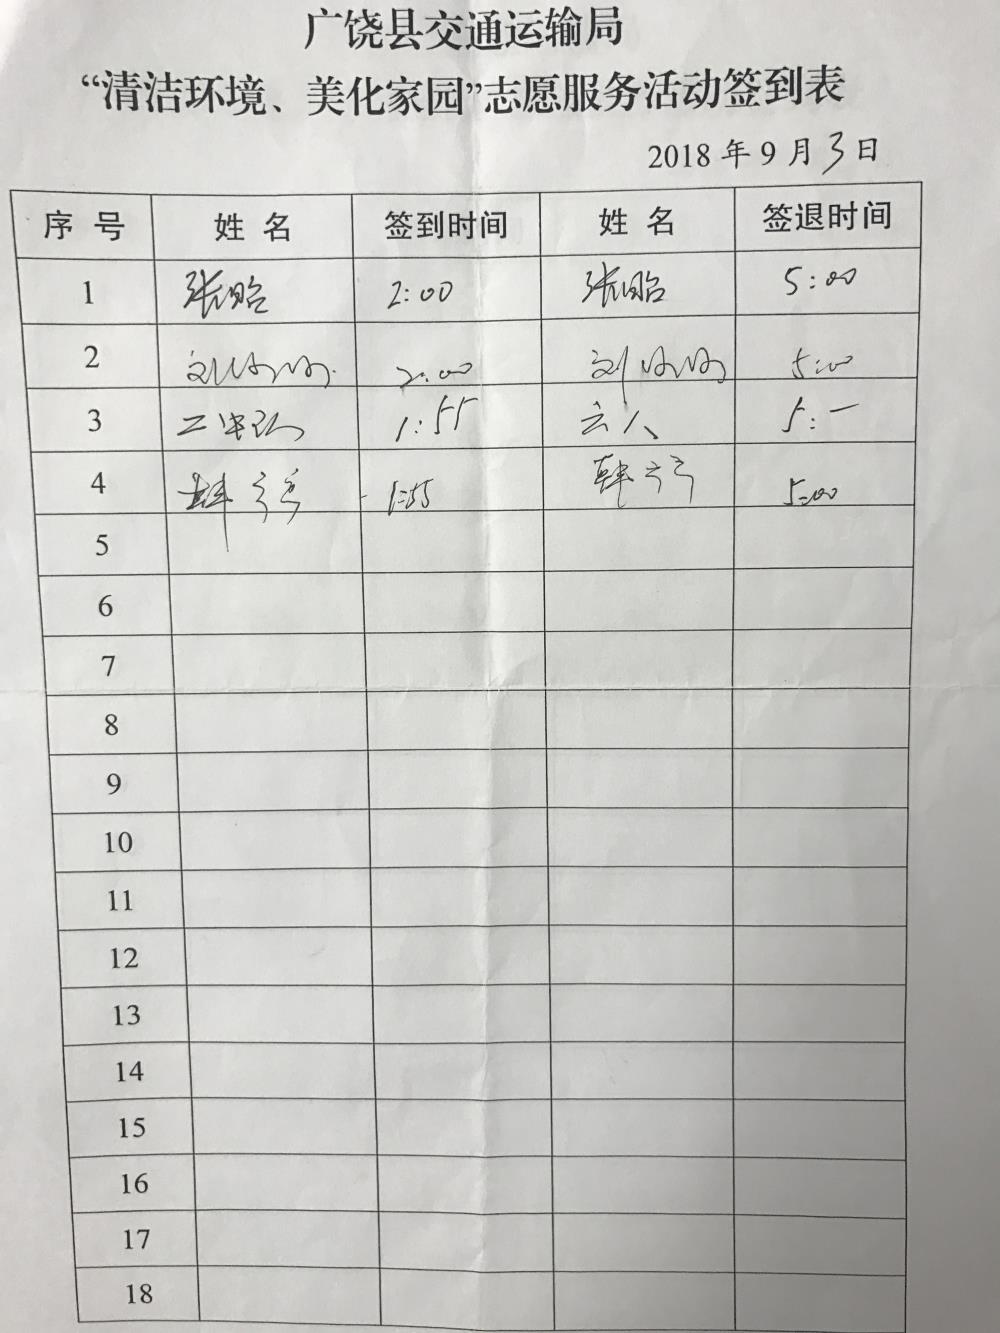 广饶县交通运输局
“清洁环境、美化家园”志愿服务活动签到表
2018 年 9 月 3 日
序 号 姓 名 签到时间 姓 名 签退时间
1 张 2:00 张 5:00
2 刘 2:00 刘 5:00
3 1:55 5:
4 韩 1:55 韩 5:00
5
6
7
8
9
10
11
12
13
14
15
16
17
18